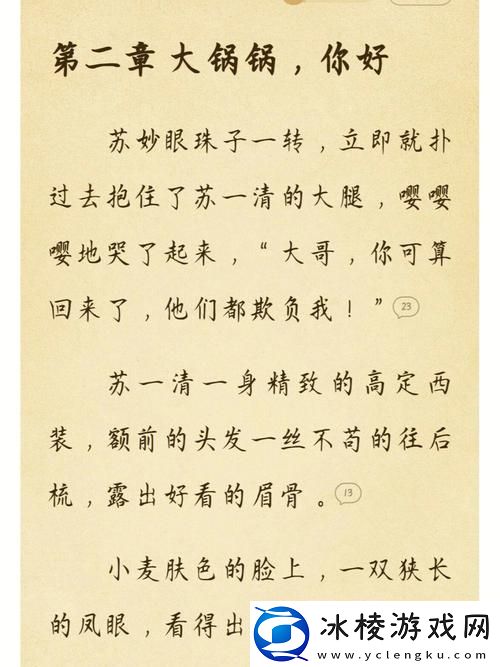 第二章 大锅锅，你好
苏妙眼珠子一转，立即就扑
过去抱住了苏一清的大腿，嘤嘤
嘤地哭了起来，“大哥，你可算
回来了，他们都欺负我！”
23
苏一清一身精致的高定西
装，额前的头发一丝不苟的往后
梳，露出好看的眉骨。
13
小麦肤色的脸上，一双狭长
的凤眼，看得出
冰棱游戏网
www.yclengku.com